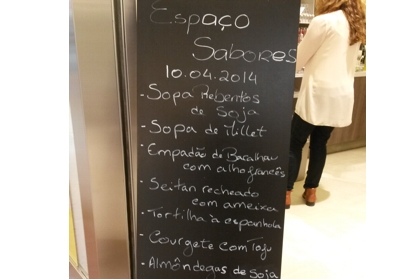 Espaço
Sabores
10.04.2014
- Sopa Rebentos
de Soja
- Sopa de Millet
- Empadão de Bacalhau
com alho francês
- Seitan recheado
com ameixa
- Tortilha à espanhola
- Courgete com Tofu
- Almôndegas de soja